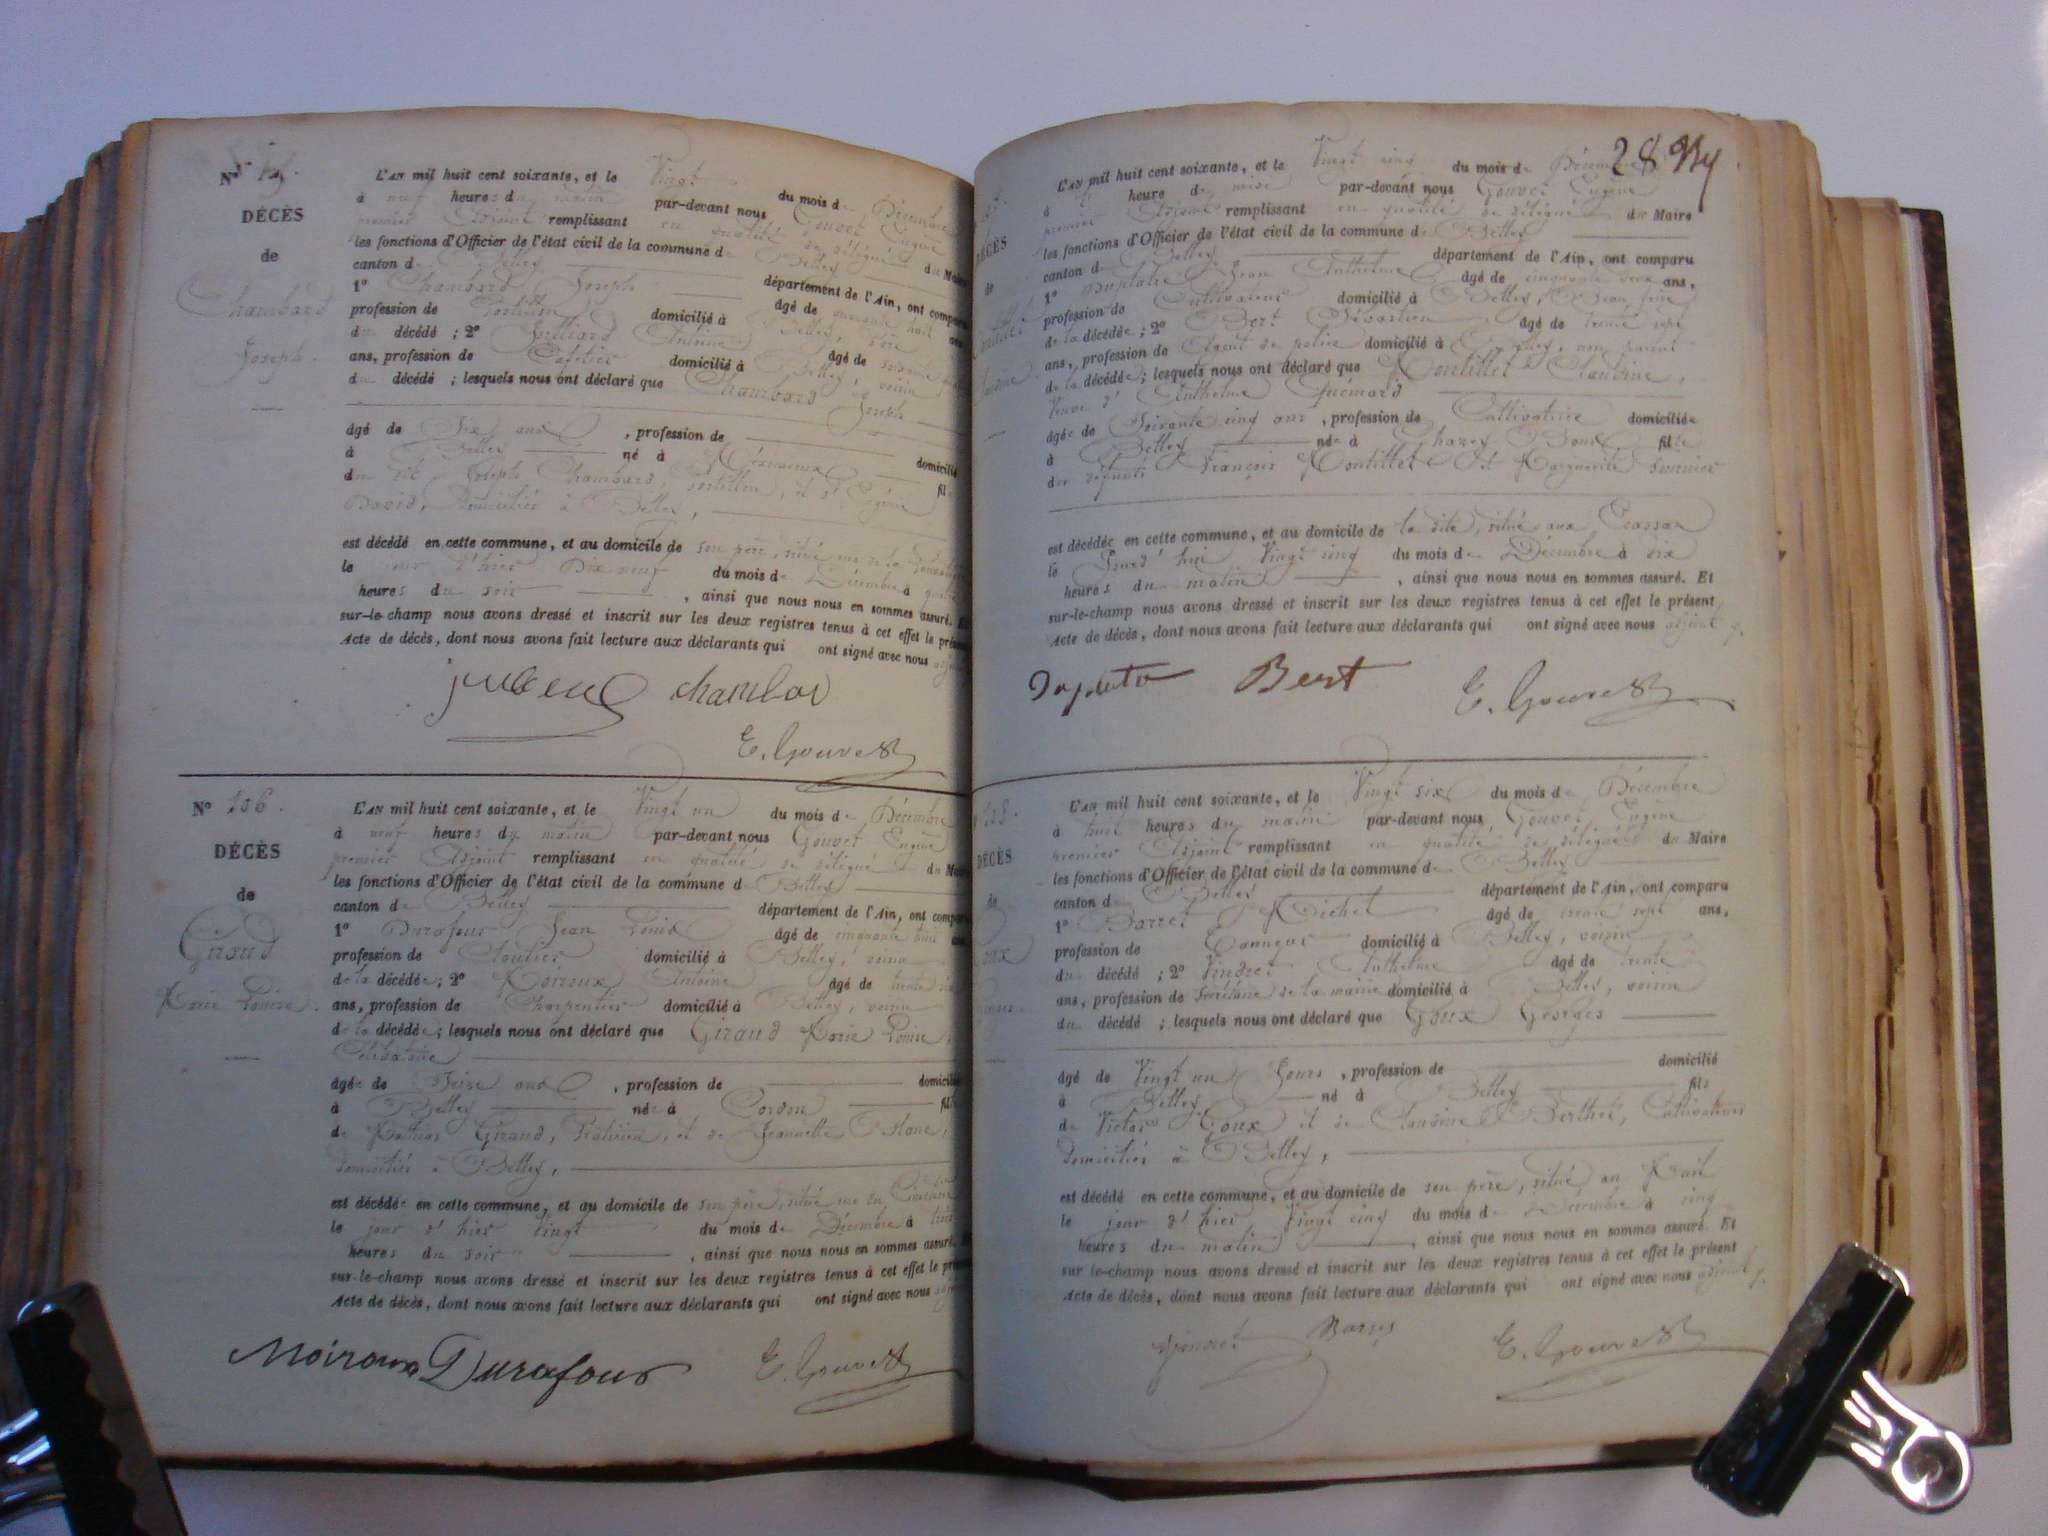 N°
DÉCÈS
de
Chambard
Joseph.
L'AN mil huit cent soixante, et le Vingt du mois de Décembre
à neuf heures du matin par-devant nous Gouvet Eugène
premier Adjoint remplissant en qualité de délégué du Maire
les fonctions d'Officier de l'état civil de la commune de Belley
canton de Belley département de l'Ain, ont comparu
1° Chambard Joseph âgé de quarante huit ans
profession de Postillon domicilié à Belley, père
du décédé ; 2° Antoine âgé de soixante
ans, profession de Cafetier domicilié à Belley, voisin
du décédé ; lesquels nous ont déclaré que Chambard Joseph
âgé de Six ans , profession de domicilié
à Belley né à fils
du dit Joseph Chambard, postillon, et d' Eugénie
David, domiciliés à Belley,
est décédé en cette commune, et au domicile de son père, situé rue de la
le jour d'hier Dix neuf du mois de Décembre à quatre
heures du soir , ainsi que nous nous en sommes assuré. Et
sur-le-champ nous avons dressé et inscrit sur les deux registres tenus à cet effet le présent
Acte de décès, dont nous avons fait lecture aux déclarants qui ont signé avec nous adjoint
E. Gouvet
N° 156.
DÉCÈS
de
Giraud
Marie Louise.
L'AN mil huit cent soixante, et le Vingt un du mois de Décembre
à neuf heures du matin par-devant nous Gouvet Eugène
premier Adjoint remplissant en qualité de délégué du Maire
les fonctions d'Officier de l'état civil de la commune de Belley
canton de Belley département de l'Ain, ont comparu
1° Durafour Jean Louis âgé de cinquante huit ans
profession de domicilié à Belley, voisin
de la décédée ; 2° Moiroux Antoine âgé de trente six
ans, profession de Charpentier domicilié à Belley, voisin
de la décédée ; lesquels nous ont déclaré que Giraud Marie Louise,
Célibataire
âgée de Seize ans , profession de domiciliée
à Belley née à Cordon fille
de Mathias Giraud, Praticien, et de Jeannette
domiciliés à Belley,
est décédée en cette commune, et au domicile de son père, situé rue du
le jour d'hier Vingt du mois de Décembre à
heures du soir , ainsi que nous nous en sommes assuré. Et
sur-le-champ nous avons dressé et inscrit sur les deux registres tenus à cet effet le présent
Acte de décès, dont nous avons fait lecture aux déclarants qui ont signé avec nous
Moiroux Durafour E. Gouvet
28
DÉCÈS
de
L'AN mil huit cent soixante, et le Vingt cinq du mois de Décembre
à heure de par-devant nous Gouvet Eugène
premier Adjoint remplissant en qualité de délégué du Maire
les fonctions d'Officier de l'état civil de la commune de Belley
canton de Belley département de l'Ain, ont comparu
1° Duplatre Jean Anthelme âgé de cinquante deux ans,
profession de Cultivateur domicilié à Belley,
de la décédée ; 2° Bert Sébastien âgé de trente sept
ans, profession de Agent de police domicilié à Belley, non parent
de la décédée ; lesquels nous ont déclaré que Montillet Claudine,
Veuve d' Anthelme
âgée de Soixante cinq ans , profession de Cultivatrice domiciliée
à Belley née à Chazey Bons fille
des défunts François Montillet et Marguerite
est décédée en cette commune, et au domicile de la dite, situé aux
le Jourd'hui Vingt cinq du mois de Décembre à six
heures du matin , ainsi que nous nous en sommes assuré. Et
sur-le-champ nous avons dressé et inscrit sur les deux registres tenus à cet effet le présent
Acte de décès, dont nous avons fait lecture aux déclarants qui ont signé avec nous adjoint
Bert E. Gouvet
DÉCÈS
de
L'AN mil huit cent soixante, et le Vingt six du mois de Décembre
à huit heures du matin par-devant nous Gouvet Eugène
premier Adjoint remplissant en qualité de délégué du Maire
les fonctions d'Officier de l'état civil de la commune de Belley
canton de Belley département de l'Ain, ont comparu
1° Barret Michel âgé de trente sept ans,
profession de Tanneur domicilié à Belley, voisin
du décédé ; 2° Anthelme âgé de trente
ans, profession de Secrétaire de la mairie domicilié à Belley, voisin
du décédé ; lesquels nous ont déclaré que Goux Georges
âgé de Vingt un Jours , profession de domicilié
à Belley né à Belley fils
de Victor Goux et de Claudine Berthet, Cultivateurs
domiciliés à Belley,
est décédé en cette commune, et au domicile de son père, situé au
le jour d'hier Vingt cinq du mois de Décembre à cinq
heures du matin , ainsi que nous nous en sommes assuré. Et
sur-le-champ nous avons dressé et inscrit sur les deux registres tenus à cet effet le présent
Acte de décès, dont nous avons fait lecture aux déclarants qui ont signé avec nous adjoint
E. Gouvet